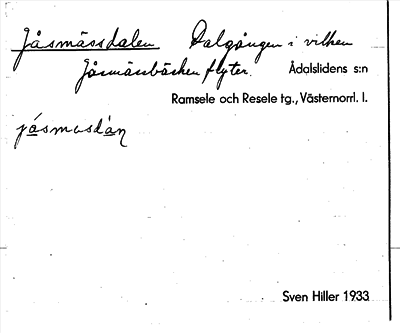 Jåsmässdalen Dalgången i vilken
Jåsmässbäcken flyter. Ådalslidens s:n
Ramsele och Resele tg., Västernorrl. l.
jåsmasdàn
Sven Hiller 1933